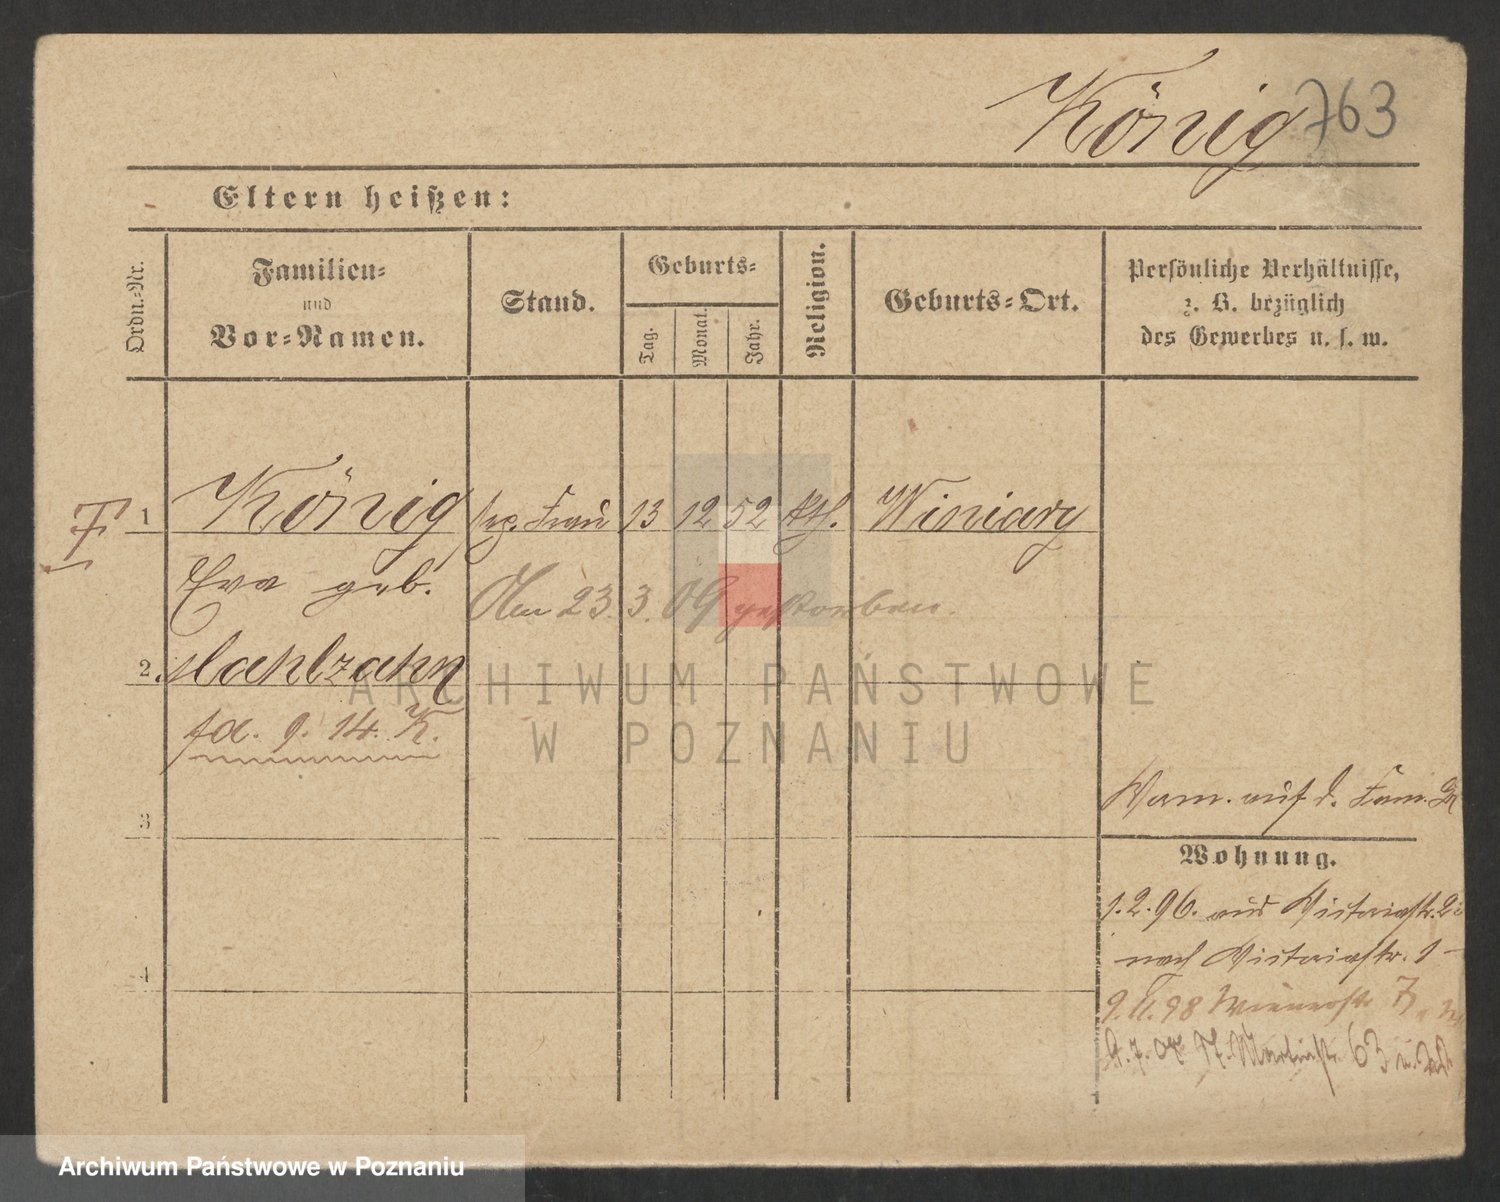 König 763
Eltern heißen:
Ordn.-Nr.
Familien-
und
Vor-Namen.
Stand.
Geburts-
Tag.
Monat.
Jahr.
Religion.
Geburts-Ort.
Persönliche Verhältnisse,
z. B. bezüglich
des Gewerbes u. s. w.
1 König Frau 13 12 52 kth. Winiary
Eva geb.
Am 23.3.09 gestorben.
2. Mahlzahn
9. 14. K.
3
auf d. Fam.
Wohnung.
1.2.96. aus Victoriastr.
nach Victoriastr. 1
4
9.II.98 Wienerstr 7
9.7. St. Martinstr. 63
ARCHIWUM PAŃSTWOWE
W POZNANIU
Archiwum Państwowe w Poznaniu